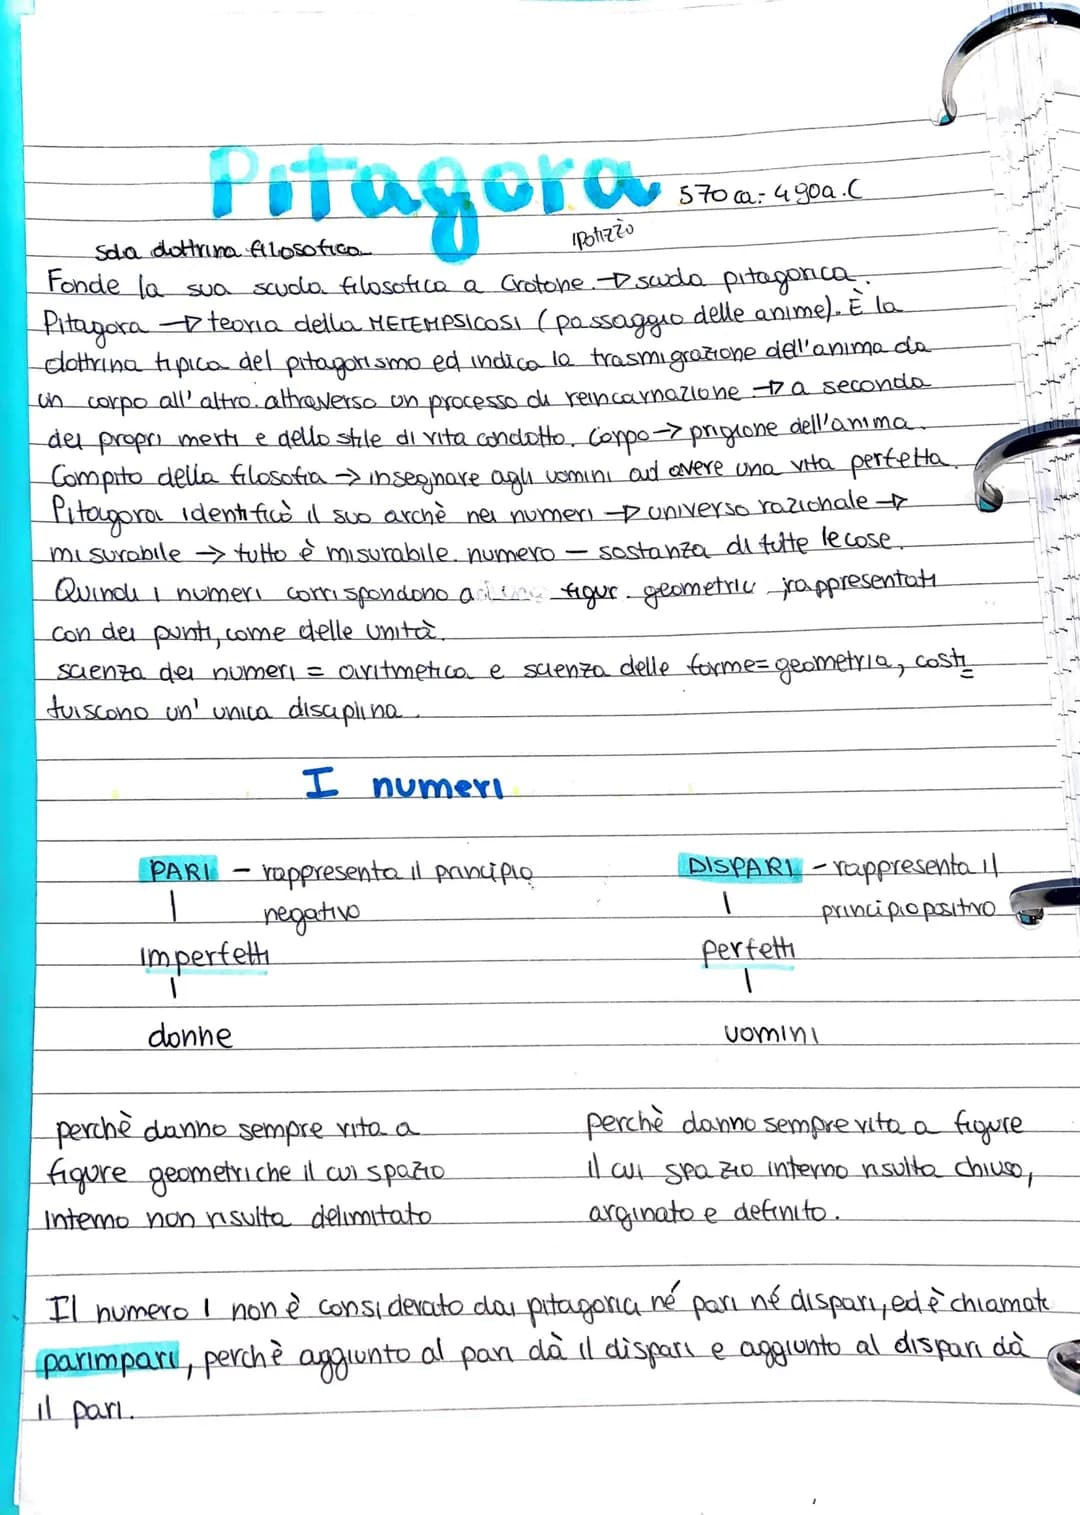 Pitagora 570 ca.- 490a.C
sola dottrina filosofica
ipotizzò
Fonde la sua scuola filosofica a Crotone. → scuola pitagorica.
Pitagora → teoria della METEMPSICOSI (passaggio delle anime). È la
dottrina tipica del pitagorismo ed indica la trasmigrazione dell'anima da
un corpo all'altro. attraverso un processo di reincarnazione → a seconda
dei propri meriti e dello stile di vita condotto. Corpo → prigione dell'anima.
Compito della filosofia → insegnare agli uomini ad avere una vita perfetta.
Pitagora identificò il suo archè nei numeri → universo razionale →
misurabile → tutto è misurabile. numero - sostanza di tutte le cose.
Quindi i numeri corrispondono a figur. geometric rappresentati
con dei punti, come delle unità.
scienza dei numeri = aritmetica e scienza delle forme= geometria, costi=
tuiscono un'unica disciplina.
I numeri
PARI - rappresenta il principio
negativo
imperfetti
donne
perchè danno sempre vita a
figure geometriche il cui spazio
interno non risulta delimitato
DISPARI - rappresenta il
principio positivo
perfetti
uomini
perchè danno sempre vita a figure
il cui spazio interno risulta chiuso,
arginato e definito.
Il numero 1 non è considerato dai pitagorici né pari né dispari, ed è chiamat
parimpari, perchè aggiunto al pari dà il dispari e aggiunto al dispari dà
il pari.